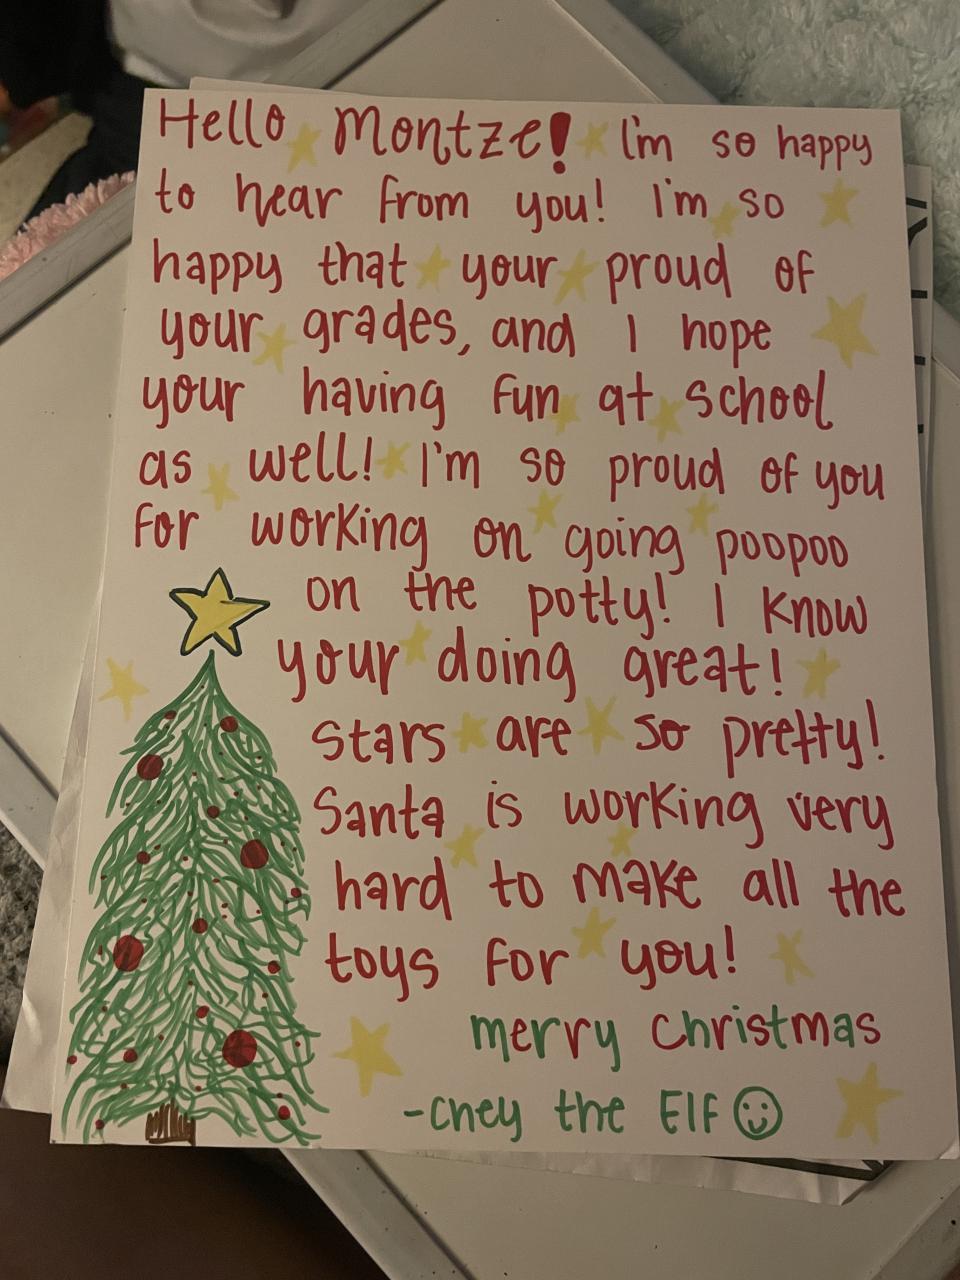 Hello Montze! I'm so happy
to hear from you! I'm so
happy that your proud of
your grades, and I hope
your having fun at school
as well! I'm so proud of you
for working on going poopoo
on the potty! I know
your doing great!
Stars are so pretty!
Santa is working very
hard to make all the
toys for you!
merry Christmas
-Chey the Elf